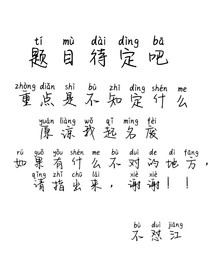 tí mù dài dìng bā
题目待定吧
zhòng diǎn shì bù zhī dìng shén me
重点是不知定什么
yuán liàng wǒ qǐ míng fèi
原谅我起名废
rú guǒ yǒu shén me bù duì de dì fāng
如果有什么不对的地方,
qǐng zhǐ chū lái xiè xiè
请指出来,谢谢!!
bù duì jiāng
不怼江